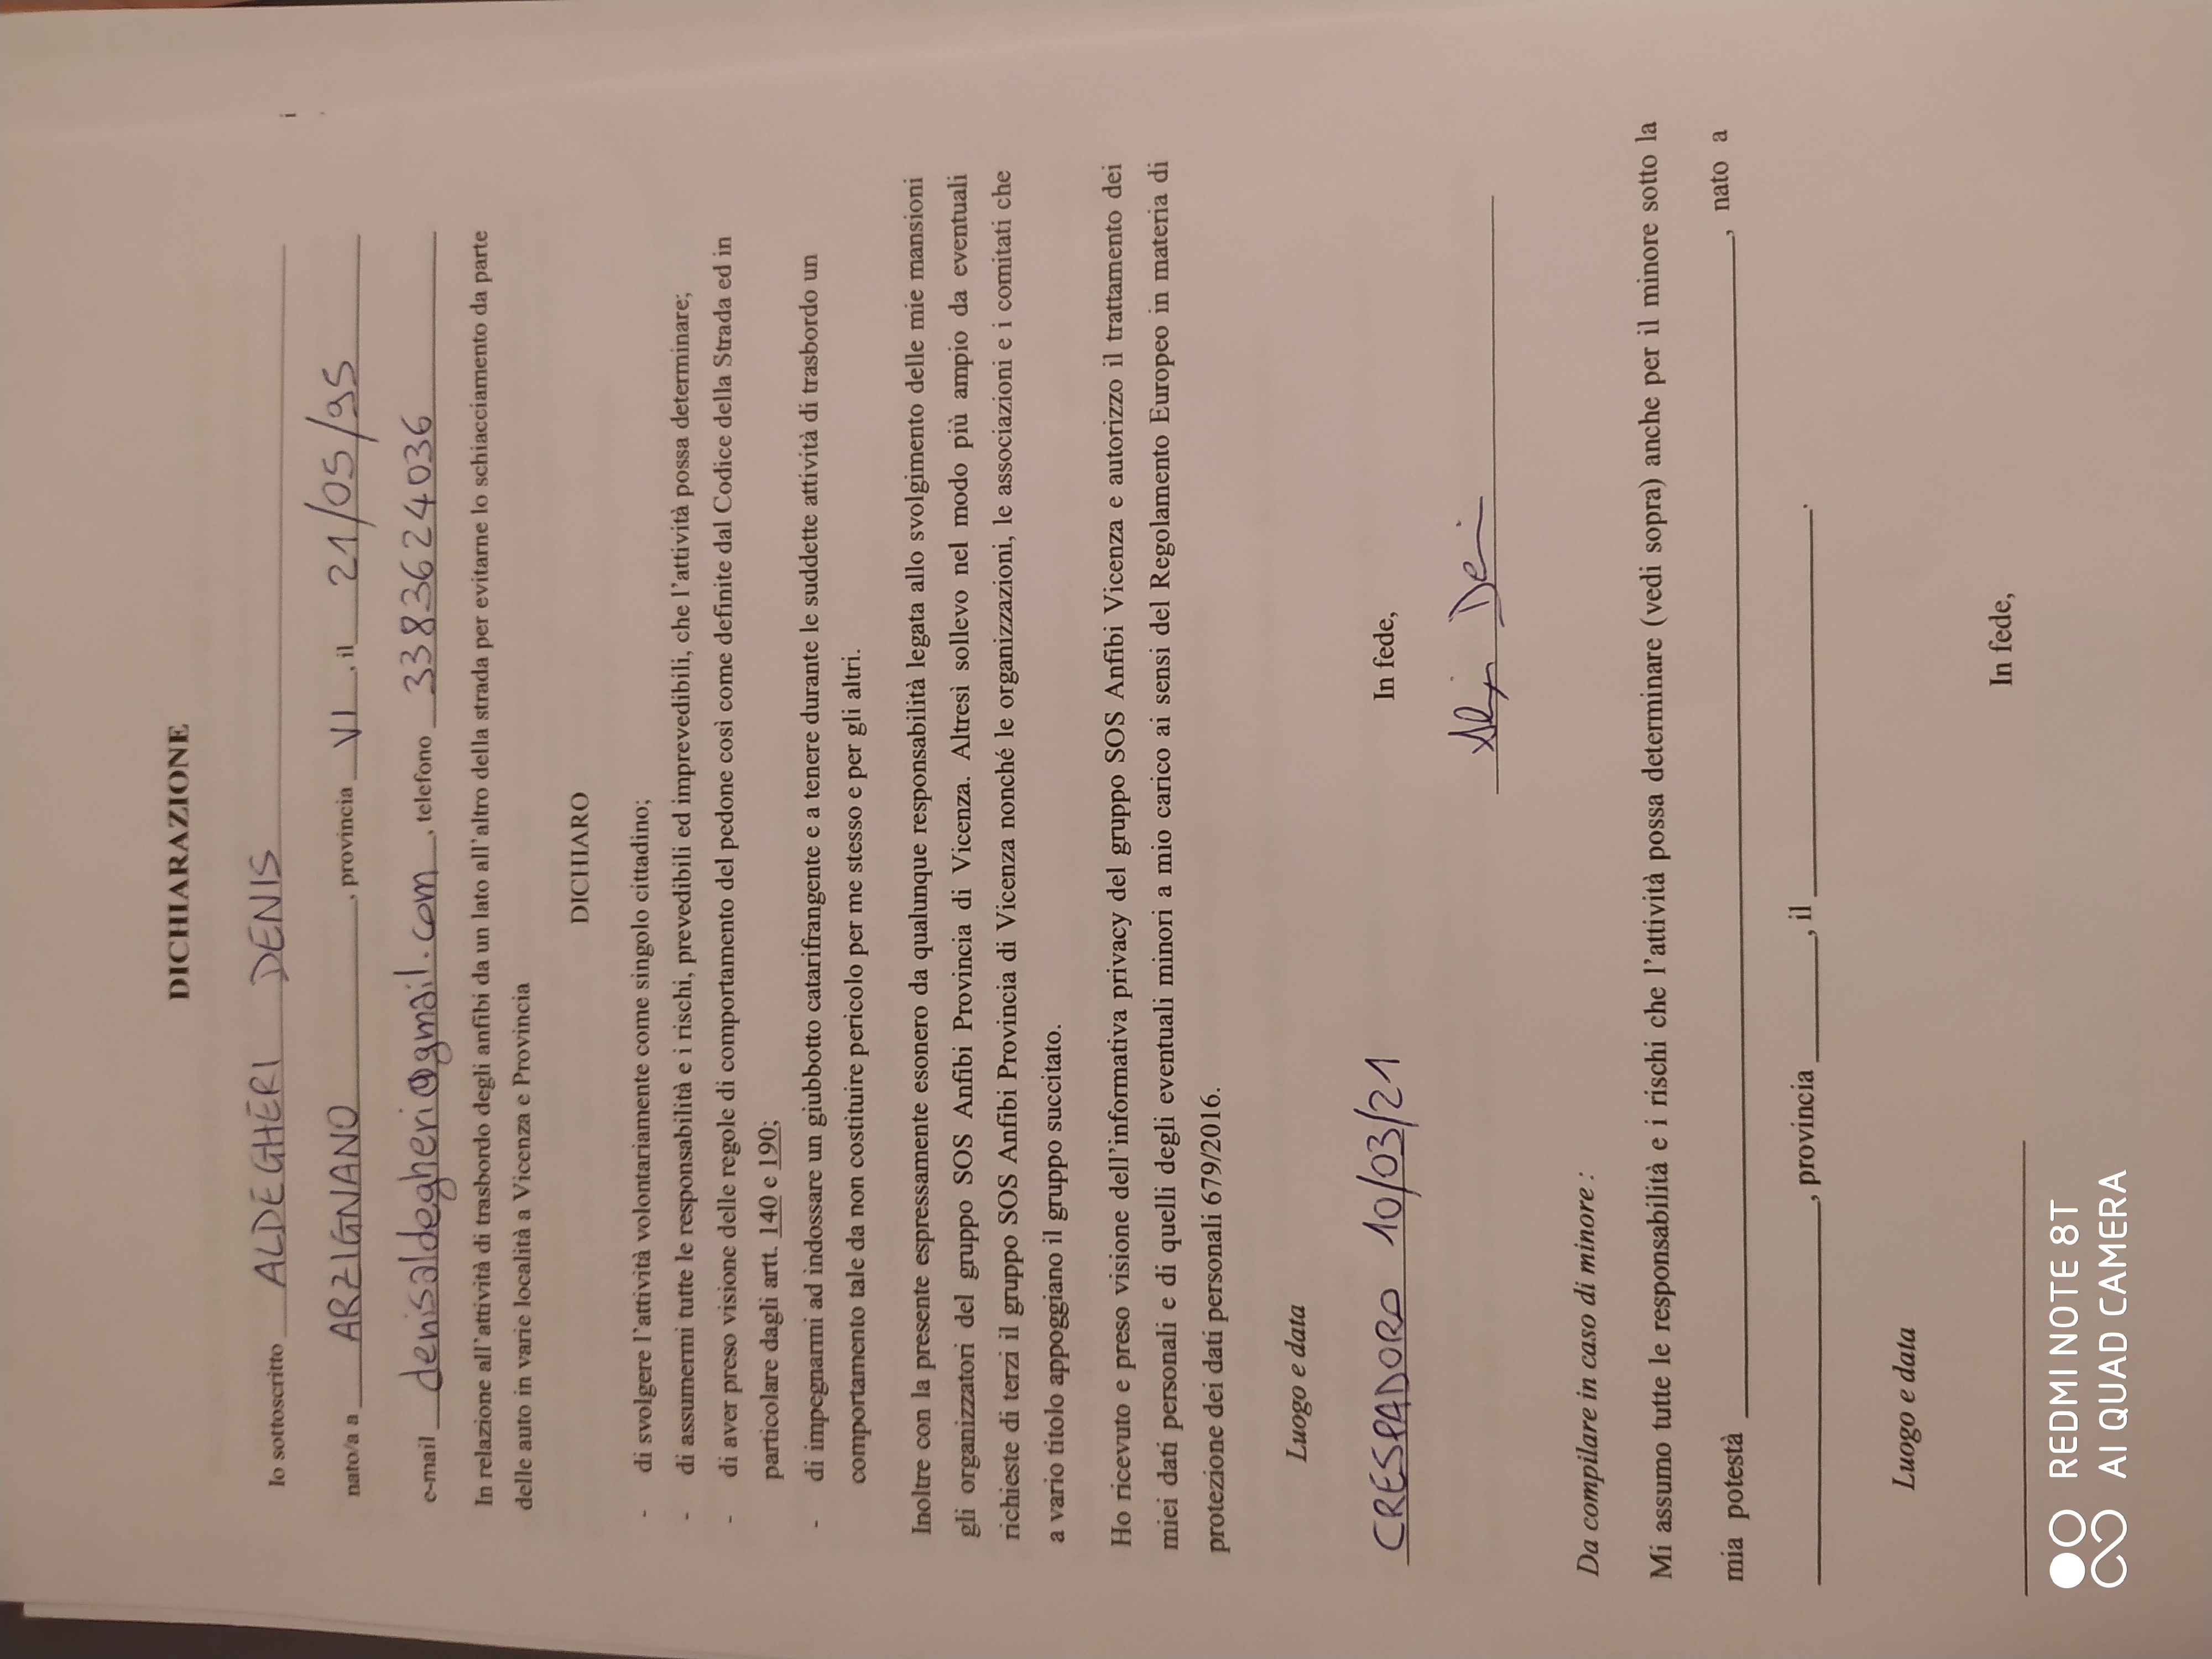 DICHIARAZIONE
Io sottoscritto ALDEGHERI DENIS
nato/a a ARZIGNANO, provincia VI, il 21/05/95
e-mail denisaldegheri@gmail.com, telefono 3383624036
In relazione all'attività di trasbordo degli anfibi da un lato all'altro della strada per evitarne lo schiacciamento da parte
delle auto in varie località a Vicenza e Provincia
DICHIARO
- di svolgere l'attività volontariamente come singolo cittadino;
- di assumermi tutte le responsabilità e i rischi, prevedibili ed imprevedibili, che l'attività possa determinare;
- di aver preso visione delle regole di comportamento del pedone così come definite dal Codice della Strada ed in
particolare dagli artt. 140 e 190;
- di impegnarmi ad indossare un giubbotto catarifrangente e a tenere durante le suddette attività di trasbordo un
comportamento tale da non costituire pericolo per me stesso e per gli altri.
Inoltre con la presente espressamente esonero da qualunque responsabilità legata allo svolgimento delle mie mansioni
gli organizzatori del gruppo SOS Anfibi Provincia di Vicenza. Altresì sollevo nel modo più ampio da eventuali
richieste di terzi il gruppo SOS Anfibi Provincia di Vicenza nonché le organizzazioni, le associazioni e i comitati che
a vario titolo appoggiano il gruppo succitato.
Ho ricevuto e preso visione dell'informativa privacy del gruppo SOS Anfibi Vicenza e autorizzo il trattamento dei
miei dati personali e di quelli degli eventuali minori a mio carico ai sensi del Regolamento Europeo in materia di
protezione dei dati personali 679/2016.
Luogo e data
CRESPADORO 10/03/21
In fede,
Da compilare in caso di minore :
Mi assumo tutte le responsabilità e i rischi che l'attività possa determinare (vedi sopra) anche per il minore sotto la
mia potestà , nato a
, provincia , il .
Luogo e data
In fede,
REDMI NOTE 8T
AI QUAD CAMERA